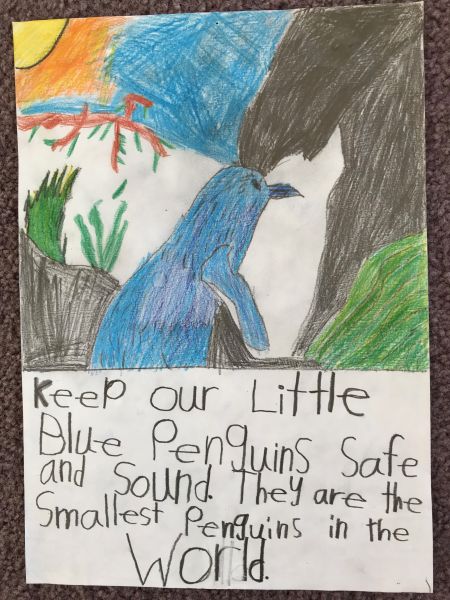 Keep our Little
Blue Penguins Safe
and Sound. They are the
Smallest Penguins in the
World.